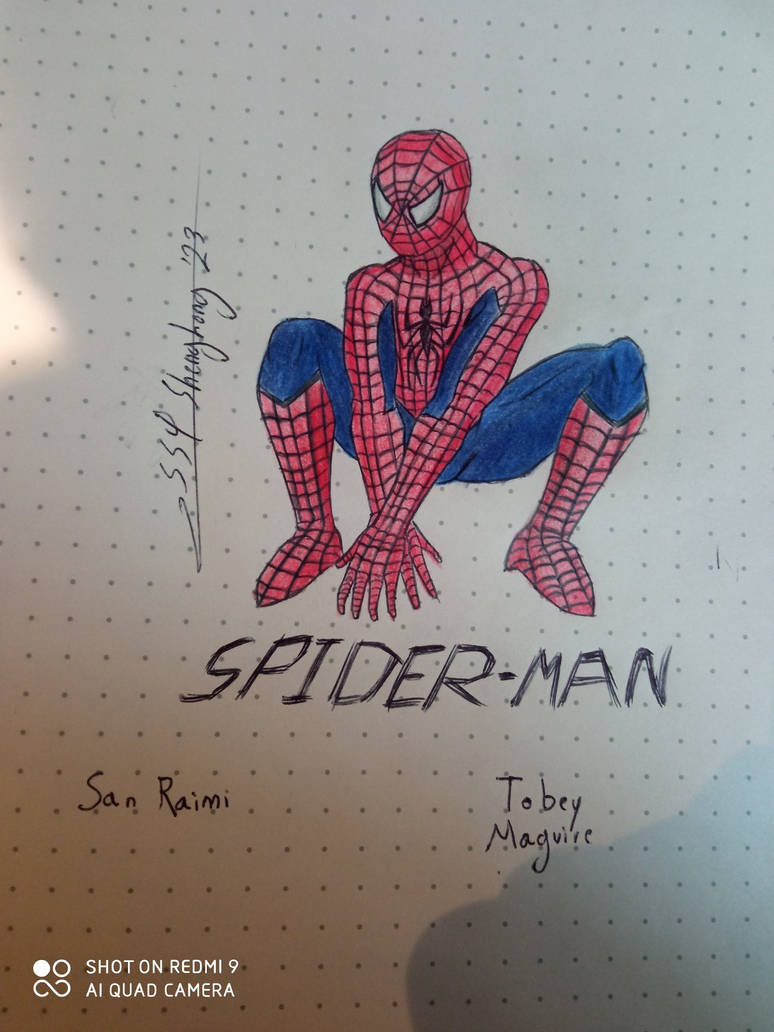 SSY Shenghong '23
SPIDER-MAN
San Raimi
Tobey
Maguire
SHOT ON REDMI 9
AI QUAD CAMERA